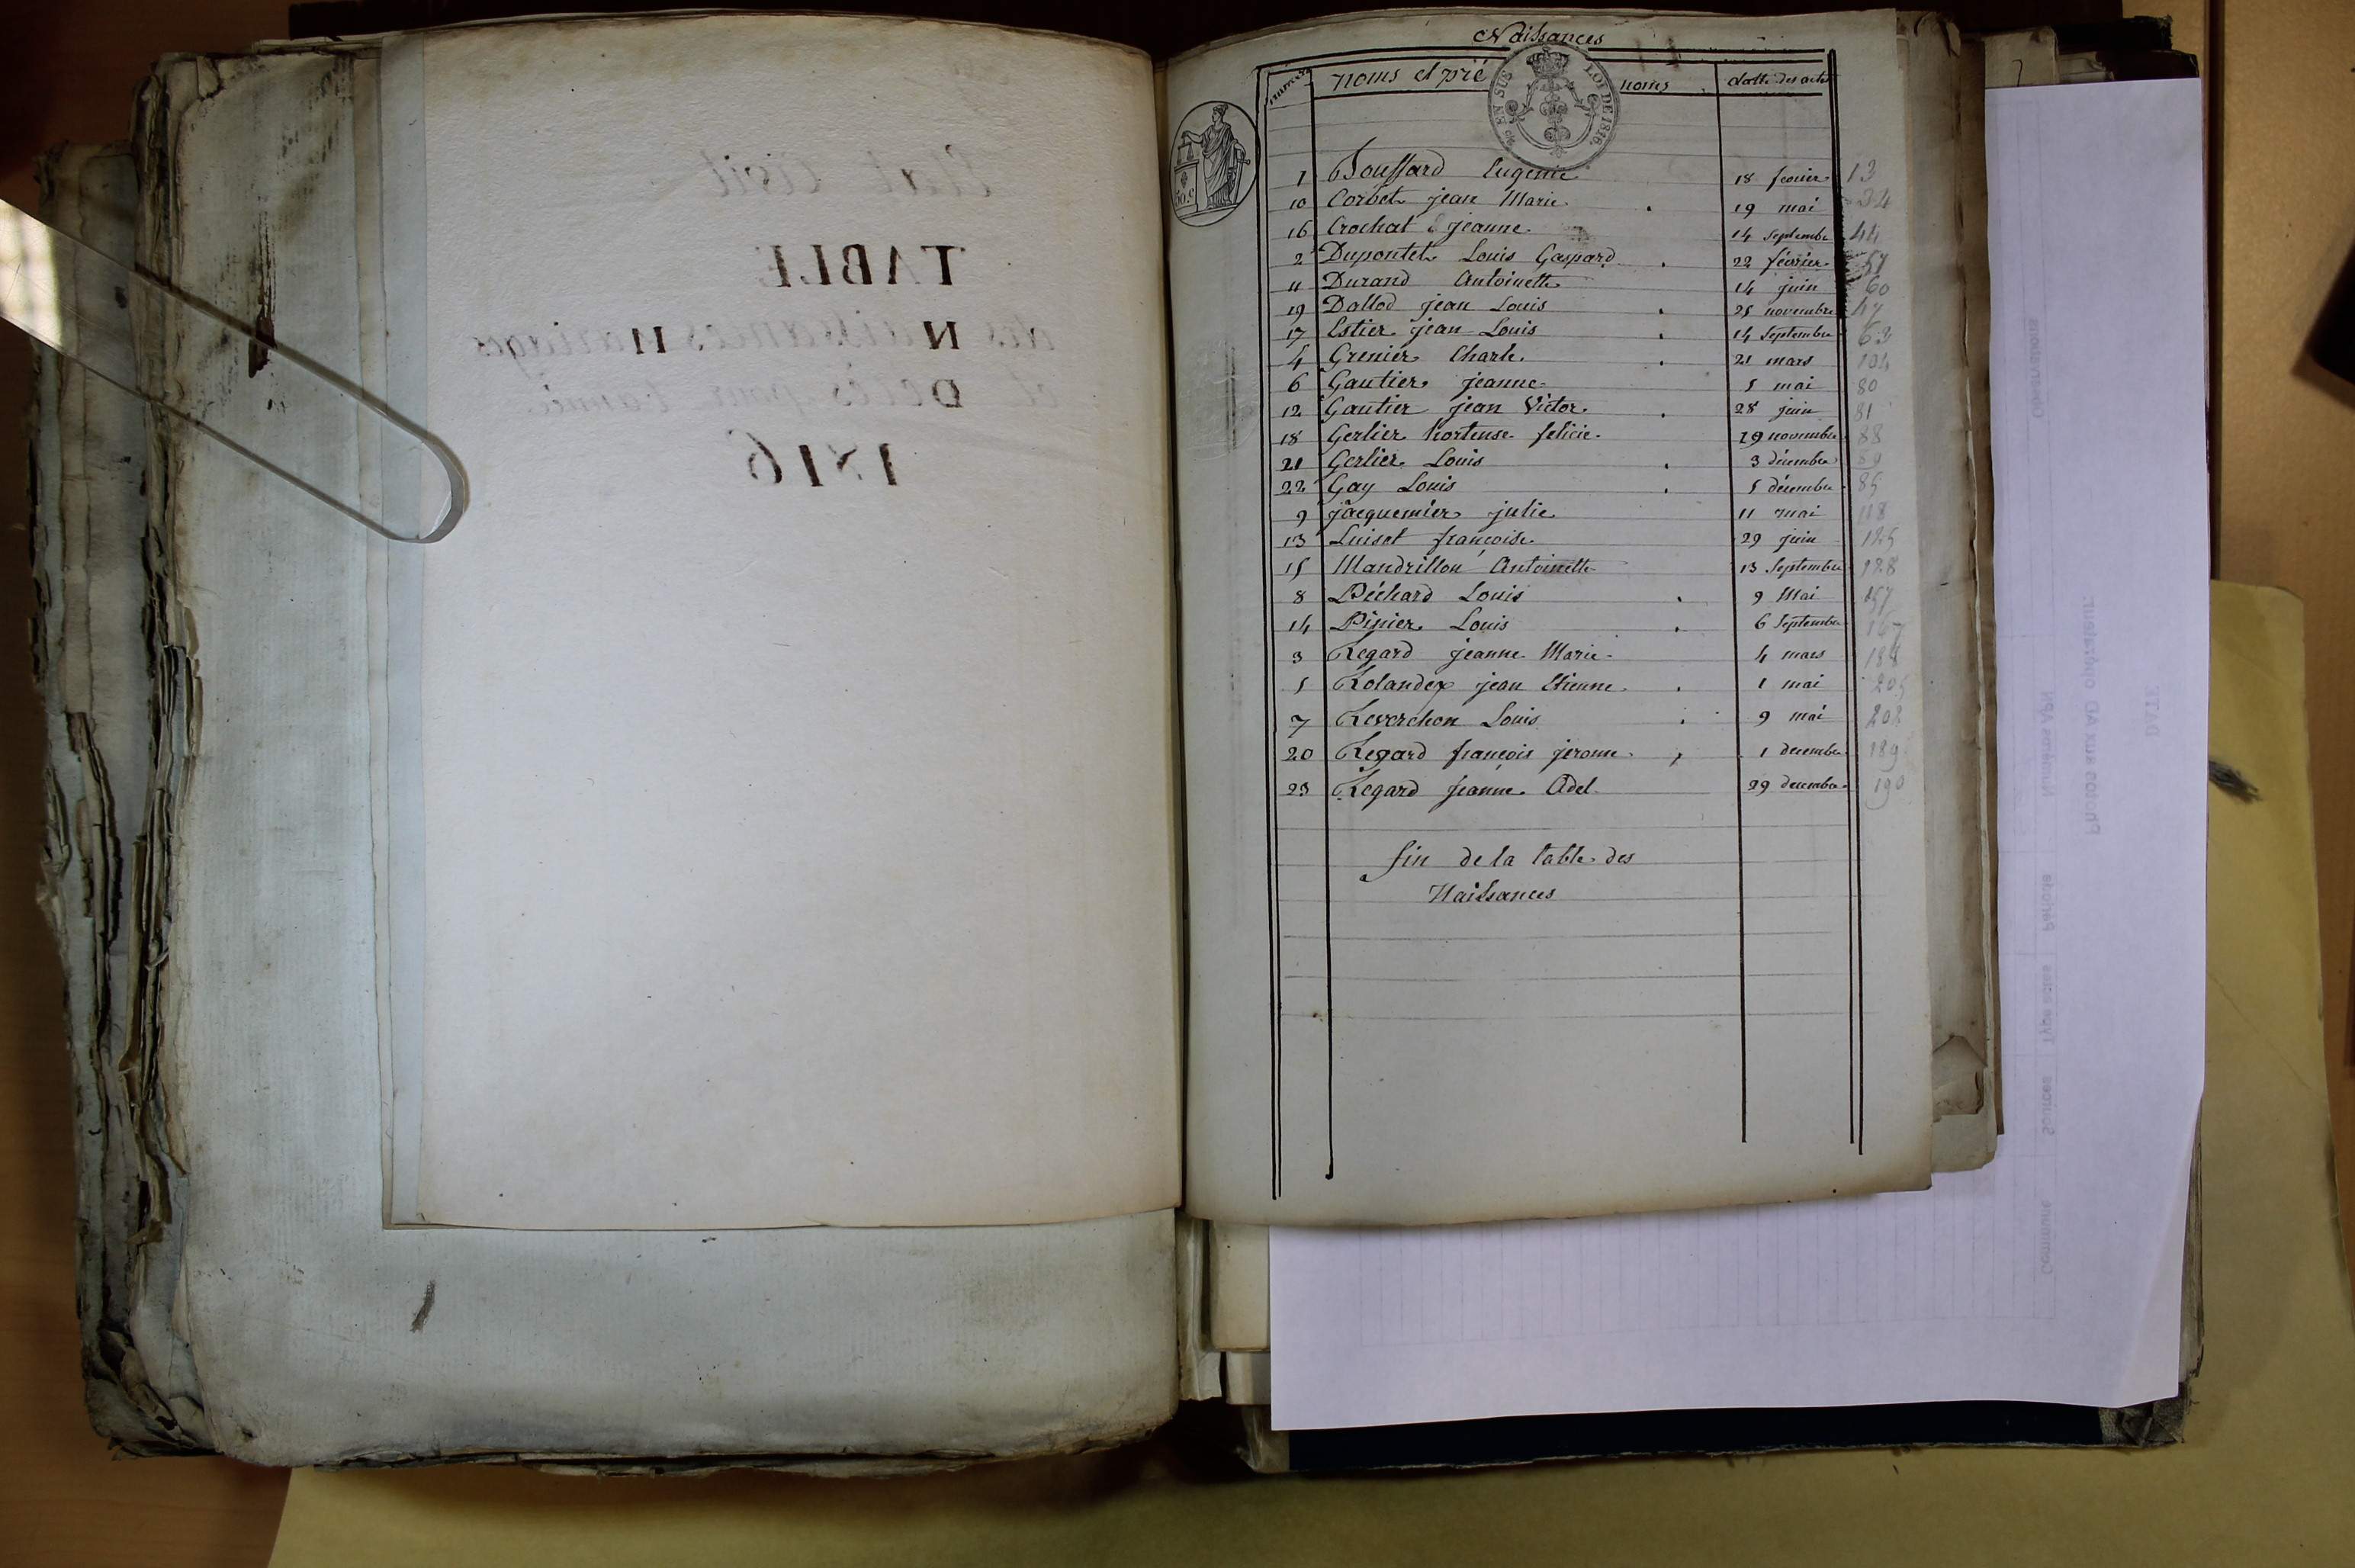 Etat Civil
TABLE
des Naissances Mariages
et Décès pour l'année
1816
Naissances
numéro noms et pré noms datte des actes
EN SUS LOI DE 1816.
50 c
1 Bouffard Eugenie 18 fevrier 13
10 Corbet jean Marie 19 mai 34
16 Crochat jeanne 14 Septembre 44
2 Dupontet Louis Gaspard 22 février 57
11 Durand Antoinette 14 juin 60
19 Dallod jean Louis 25 novembre 47
17 Estier jean Louis 14 Septembre 63
4 Grenier Charle 21 mars 104
6 Gautier jeanne 5 mai 80
12 Gautier jean Victor 28 juin 81
18 Gerlier hortense felicie 19 novembre 88
21 Gerlier Louis 3 décembre 89
22 Gay Louis 5 décembre 85
9 jacquemier julie 11 mai 118
13 Luiset françoise 29 juin 125
15 Mandrillon Antoinette 13 Septembre 128
8 Péchard Louis 9 Mai 157
14 Pinier Louis 6 Septembre 167
3 Regard jeanne Marie 4 mars 188
5 Rolandez jean Etienne 1 mai 205
7 Reverchon Louis 9 mai 202
20 Regard françois jerome 1 decembre 189
23 Regard jeanne Adel 29 decembre 190
fin de la table des
Naissances
Observations
DATE
Photos aux AD opérateur:
Commune Sources Type actes Période Numéros APN